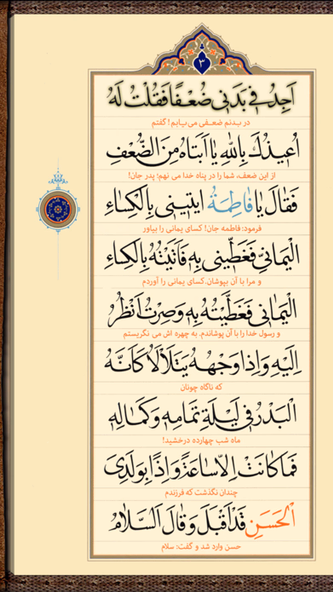 ۳
اَجِدُ فی بَدَنی ضُعْفًا فَقُلْتُ لَهُ
در بدنم ضعـفی می‌یـابم ! گفتم
اُعیذُکَ بِاللهِ یا اَبَتاهُ مِنَ الضُّعْفِ
از این ضعف، شما را در پناه خدا می نهم؛ پدر جان!
فَقالَ یا فاطِمَةُ ایتینی بِالْکِساءِ
فرمود: فاطمه جان! کسای یمانی را بیاور
الْیَمانی فَغَطّینی بِهِ فَاَتَیْتُهُ بِالْکِساءِ
و مرا با آن بپوشان. کسای یمانی را آوردم
الْیَمانی فَغَطَّیْتُهُ بِهِ وَ صِرْتُ اَنْظُرُ
و رسول خدا را با آن پوشاندم. به چهره اش می نگریستم
اِلَیْهِ وَ اِذا وَجْهُهُ یَتَلَأْلَأُ کَاَنَّهُ
که ناگاه چونان
الْبَدْرُ فی لَیْلَةِ تَمامِهِ وَ کَمالِهِ
ماه شب چهارده درخشید!
فَما کانَتْ اِلّا ساعَةً وَ اِذا بِوَلَدِیَ
چندان نگذشت که فرزندم
الْحَسَنِ قَدْ اَقْبَلَ وَ قالَ السَّلامُ
حسن وارد شد و گفت: سلام